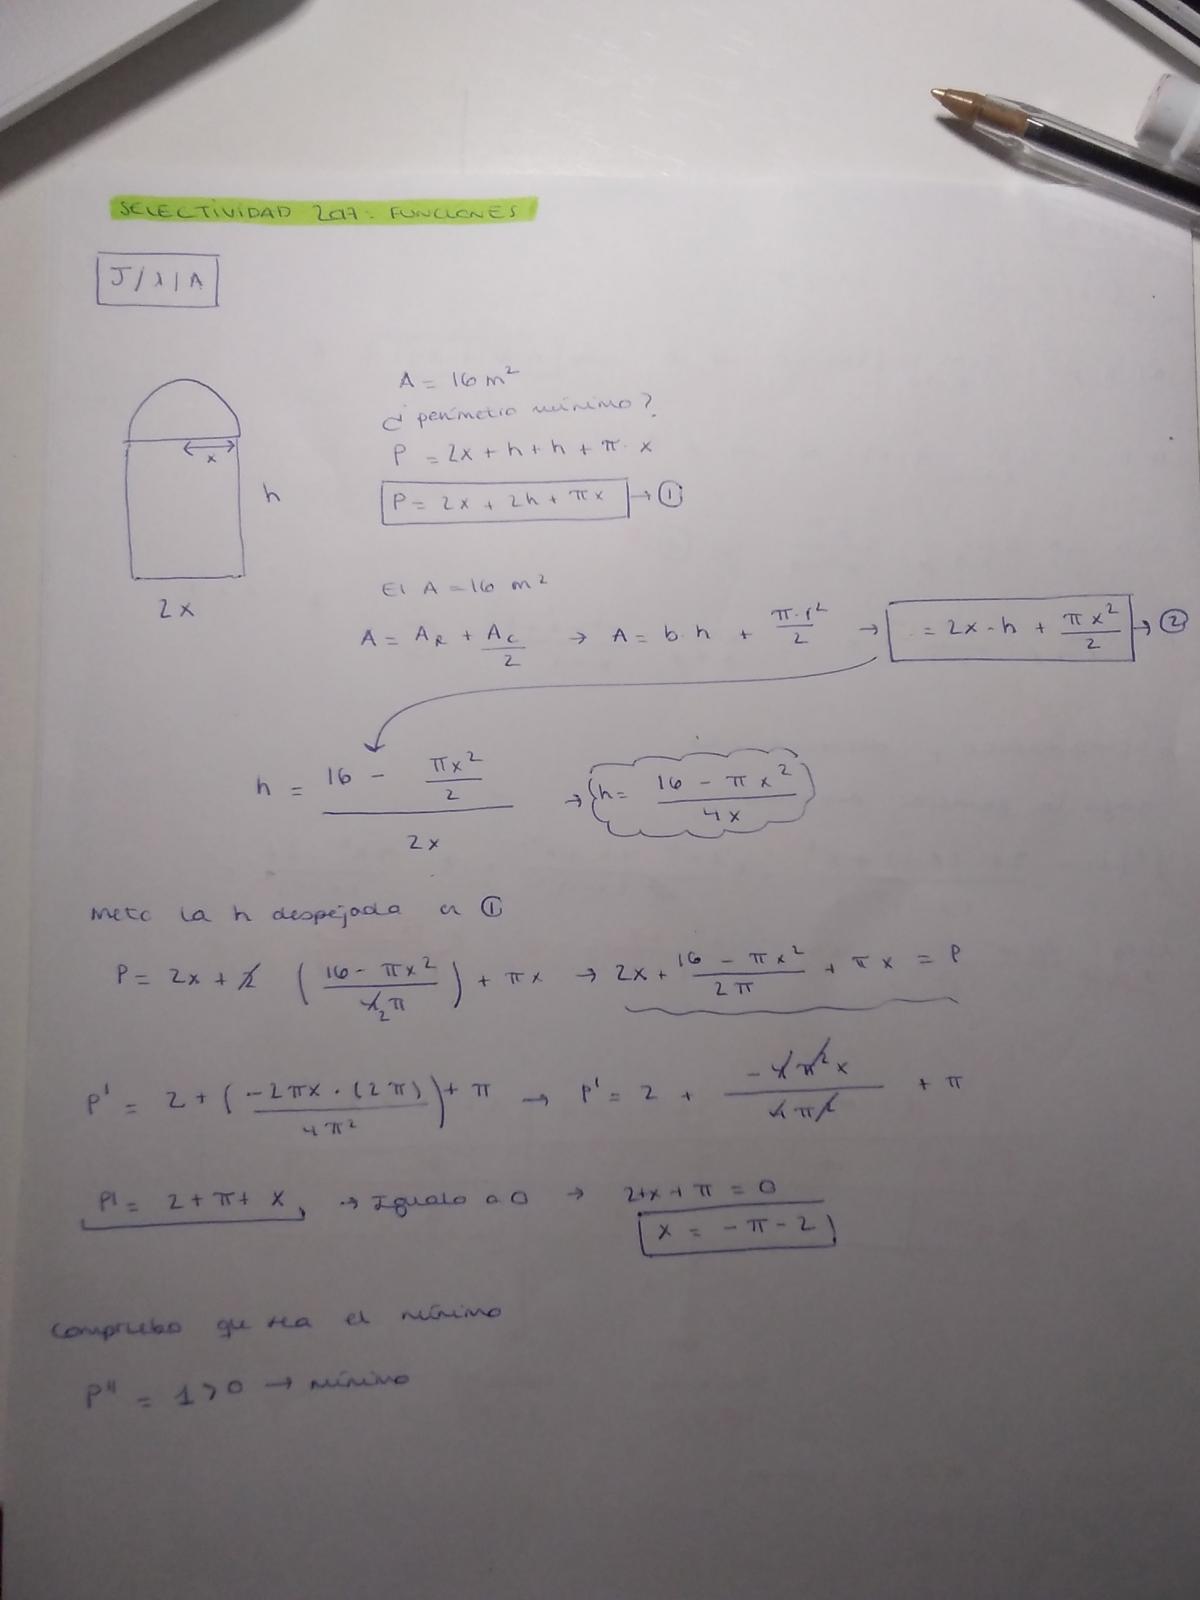 SELECTIVIDAD 2017: FUNCIONES
J/1/A
A = 16 m²
¿perímetro mínimo?
P = 2x + h + h + π · x
P = 2x + 2h + πx → ①
x
h
2x
El A = 16 m²
A = A_R + A_C/2 → A = b·h + π·r²/2 → = 2x·h + πx²/2 → ②
h = (16 - πx²/2)/2x → h = (16 - πx²)/4x
Meto la h despejada en ①
P = 2x + 2 ((16 - πx²)/4₂π) + πx → 2x + (16 - πx²)/2π + πx = P
P' = 2 + (-2πx · (2π)/4π²) + π → P' = 2 + -4π²x/4π² + π
P' = 2 + π + x, → Igualo a 0 → 2+x+π = 0
x = -π - 2
Compruebo que sea el mínimo
P'' = 1 > 0 → mínimo